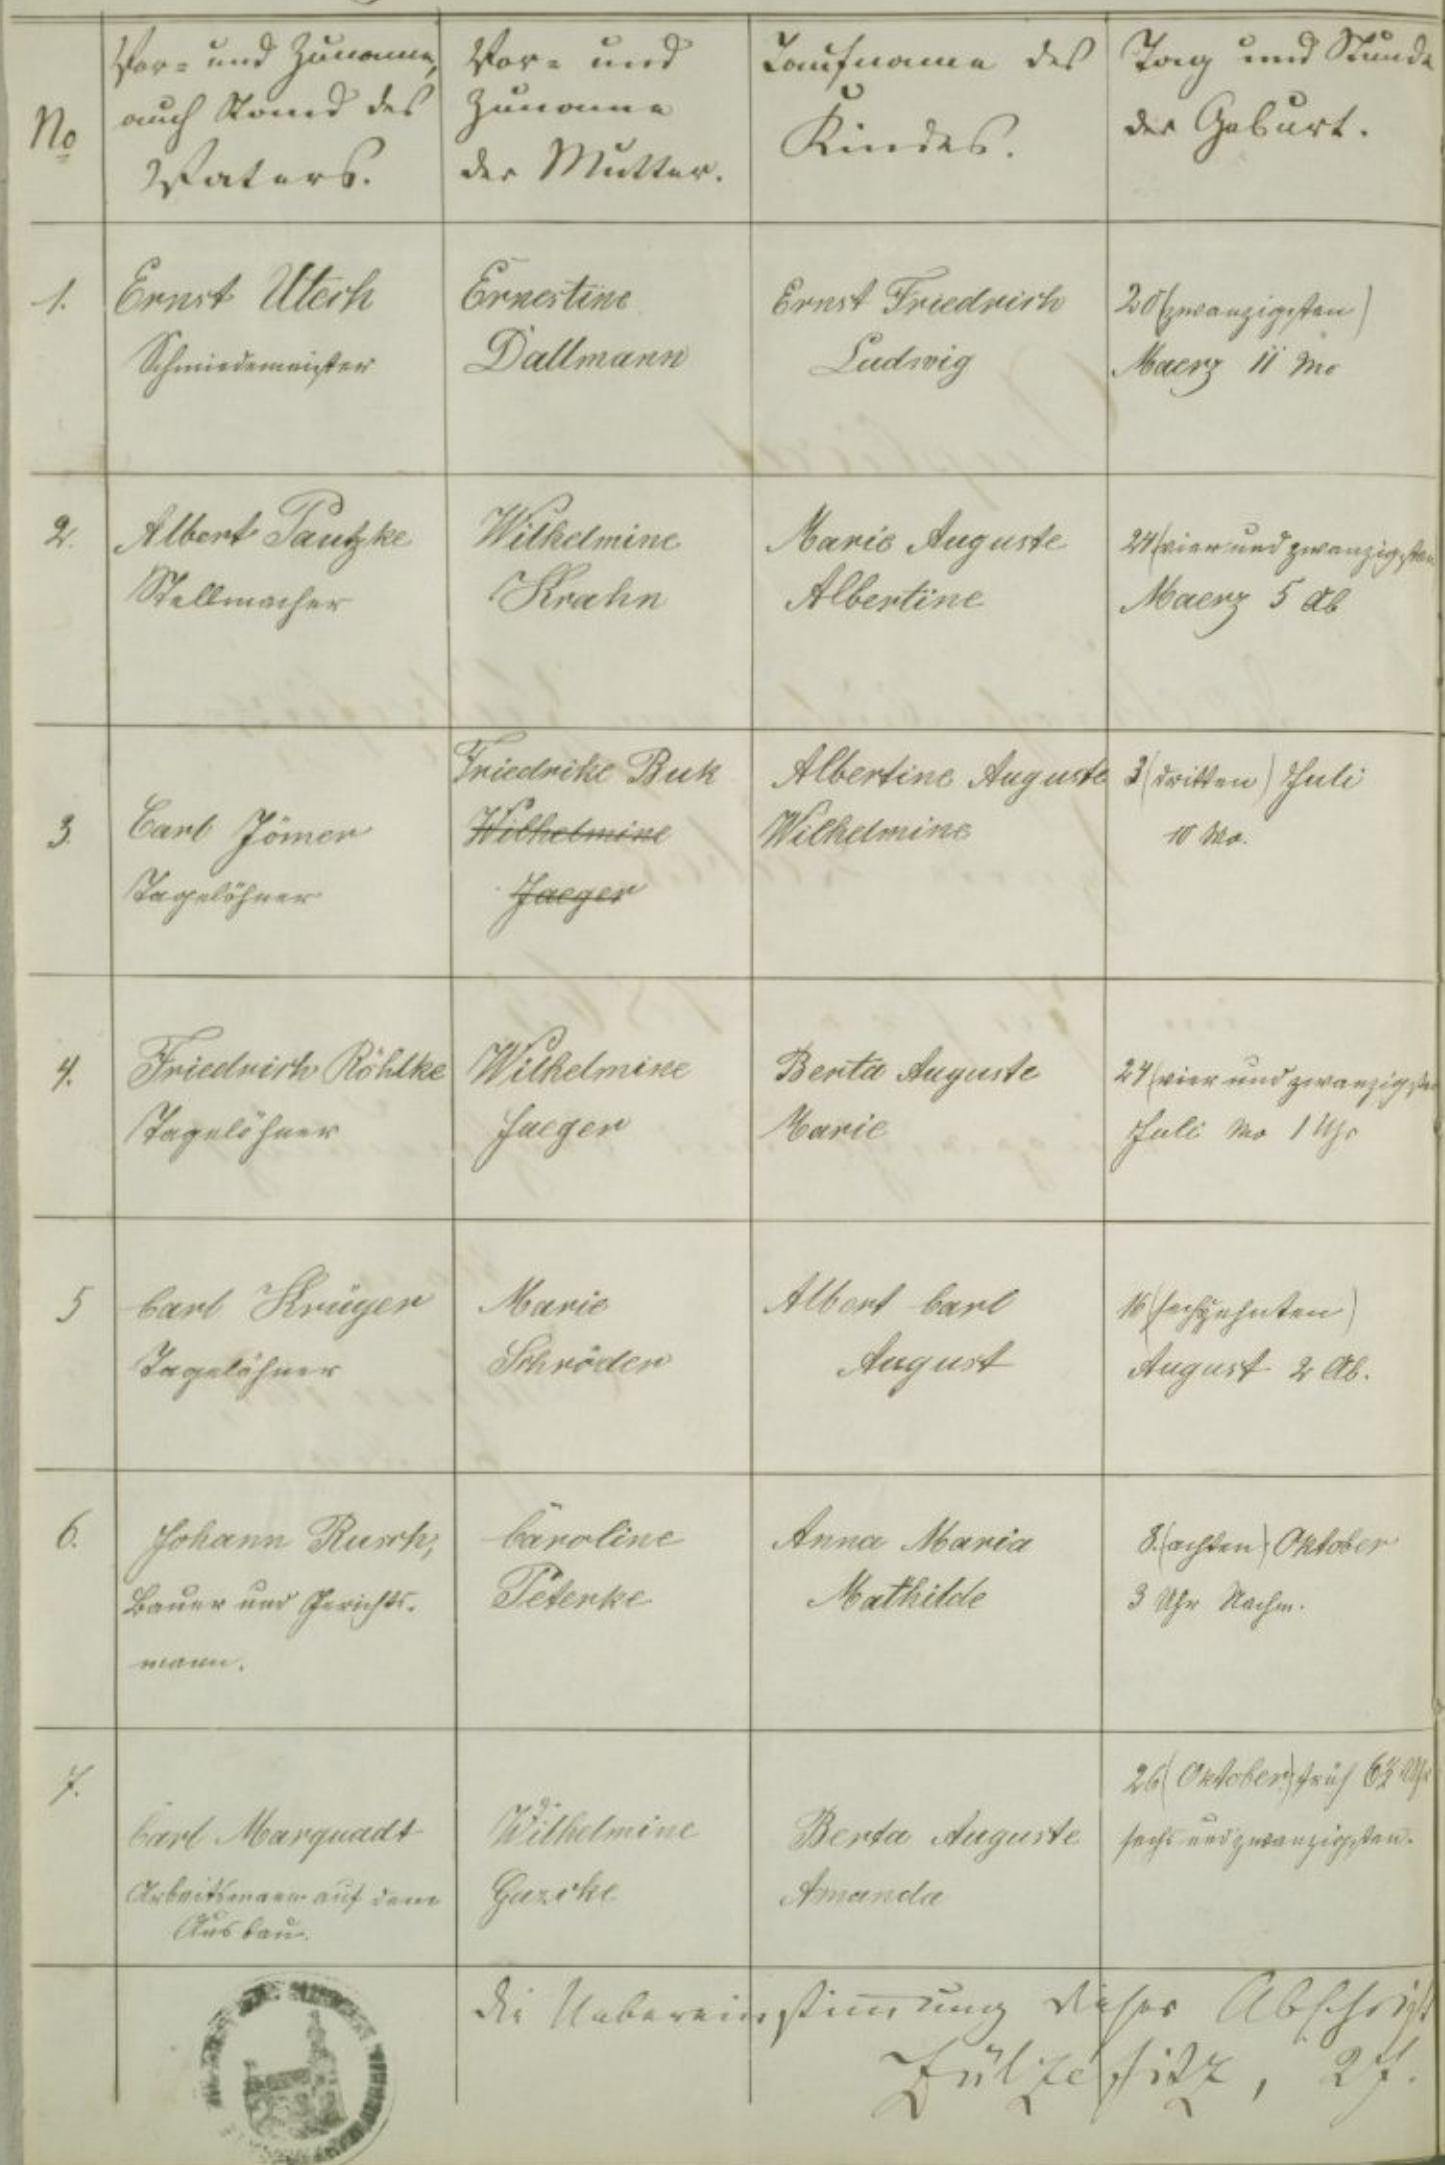 No
Vor- und Zuname,
auch Stand des
Vaters.
Vor- und
Zuname
der Mutter.
Taufname des
Kindes.
Tag und Stunde
der Geburt.
1.
Ernst Utech
Schmiedemeister
Ernestine
Dallmann
Ernst Friedrich
Ludwig
20 (zwanzigsten)
Maerz 11 Mo
2.
Albert Pautzke
Stellmacher
Wilhelmine
Krahn
Marie Auguste
Albertine
24 (vier und zwanzigsten
Maerz 5 Ab
3.
Carl Jömer
Tagelöhner
Friedrike Buk
Wilhelmine
Jaeger
Albertine Auguste
Wilhelmine
3 (dritten) Juli
10 Mo.
4.
Friedrich Röhlke
Tagelöhner
Wilhelmine
Jaeger
Berta Auguste
Marie
24 (vier und zwanzigsten
Juli Mo 1 Uhr
5
Carl Krüger
Tagelöhner
Marie
Schröder
Albert Carl
August
16 (sechzehnten)
August 2 Ab.
6.
Johann Rusch,
Bauer und Gerichts-
mann.
Caroline
Petenke
Anna Maria
Mathilde
8. (achten) Oktober
3 Uhr Nachm.
7.
Carl Marquadt
Arbeitsmann auf dem
Ausbau.
Wilhelmine
Gazcke
Berta Auguste
Amanda
26 (Oktober) früh 6½ Uhr
sechs und zwanzigsten.
die Uebereinstimmung dieser Abschrift
Zülzefitz, 27.